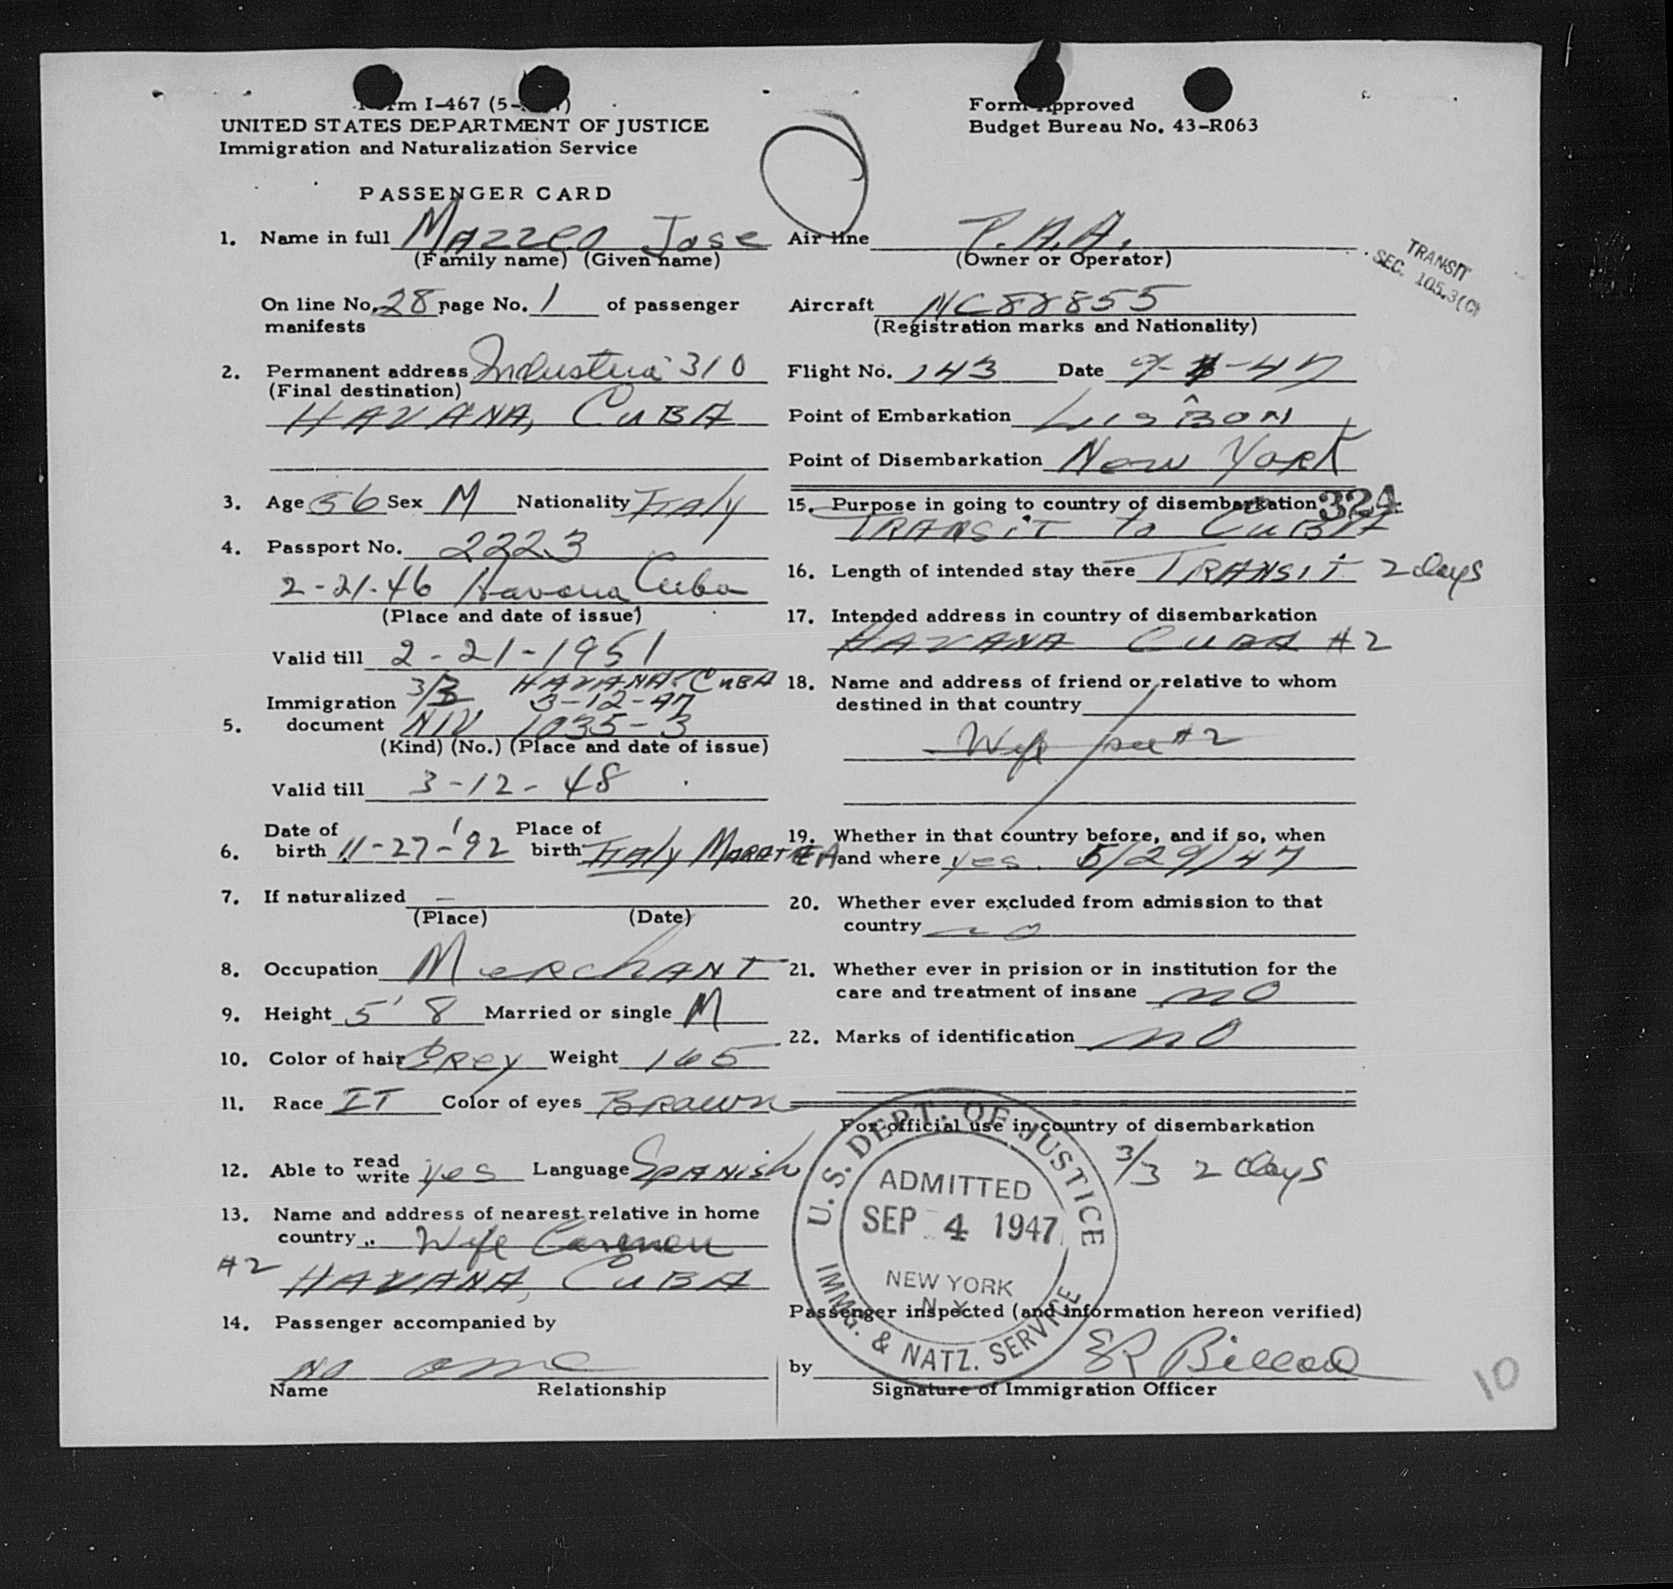 Form I-467 (5-
UNITED STATES DEPARTMENT OF JUSTICE
Immigration and Naturalization Service
Form Approved
Budget Bureau No. 43-R063
PASSENGER CARD
1. Name in full Mazzeo Jose
(Family name) (Given name)
On line No. 28 page No. 1 of passenger
manifests
2. Permanent address Industria 310
(Final destination)
HAVANA, CUBA
3. Age 56 Sex M Nationality Italy
4. Passport No. 2223
2-21-46 Havana Cuba
(Place and date of issue)
Valid till 2-21-1951
3/3 HAVANA, CUBA
Immigration 3-12-47
5. document NIV 1035-3
(Kind) (No.) (Place and date of issue)
Valid till 3-12-48
6. Date of birth 11-27-'92 Place of birth Italy MARATEA
7. If naturalized —
(Place) (Date)
8. Occupation MERCHANT
9. Height 5' 8 Married or single M
10. Color of hair GREY Weight 165
11. Race IT Color of eyes BROWN
12. Able to read write yes Language SPANISH
13. Name and address of nearest relative in home
country .. Wife Carmen
#2 HAVANA, CUBA
14. Passenger accompanied by
no one
Name Relationship
Air line P.A.A.
(Owner or Operator)
TRANSIT
SEC. 105.3(C)
Aircraft NC88855
(Registration marks and Nationality)
Flight No. 143 Date 9-4-47
Point of Embarkation LISBON
Point of Disembarkation New York
15. Purpose in going to country of disembarkation 324
TRANSIT to CUBA
16. Length of intended stay there TRANSIT 2 days
17. Intended address in country of disembarkation
HAVANA CUBA #2
18. Name and address of friend or relative to whom
destined in that country
Wife see #2
19. Whether in that country before, and if so, when
and where yes. 5/29/47
20. Whether ever excluded from admission to that
country no
21. Whether ever in prision or in institution for the
care and treatment of insane no
22. Marks of identification no
For official use in country of disembarkation
3/3 2 days
U.S. DEPT. OF JUSTICE
ADMITTED
SEP 4 1947
NEW YORK
N.Y.
IMMG. & NATZ. SERVICE
Passenger inspected (and information hereon verified)
by
Signature of Immigration Officer
10